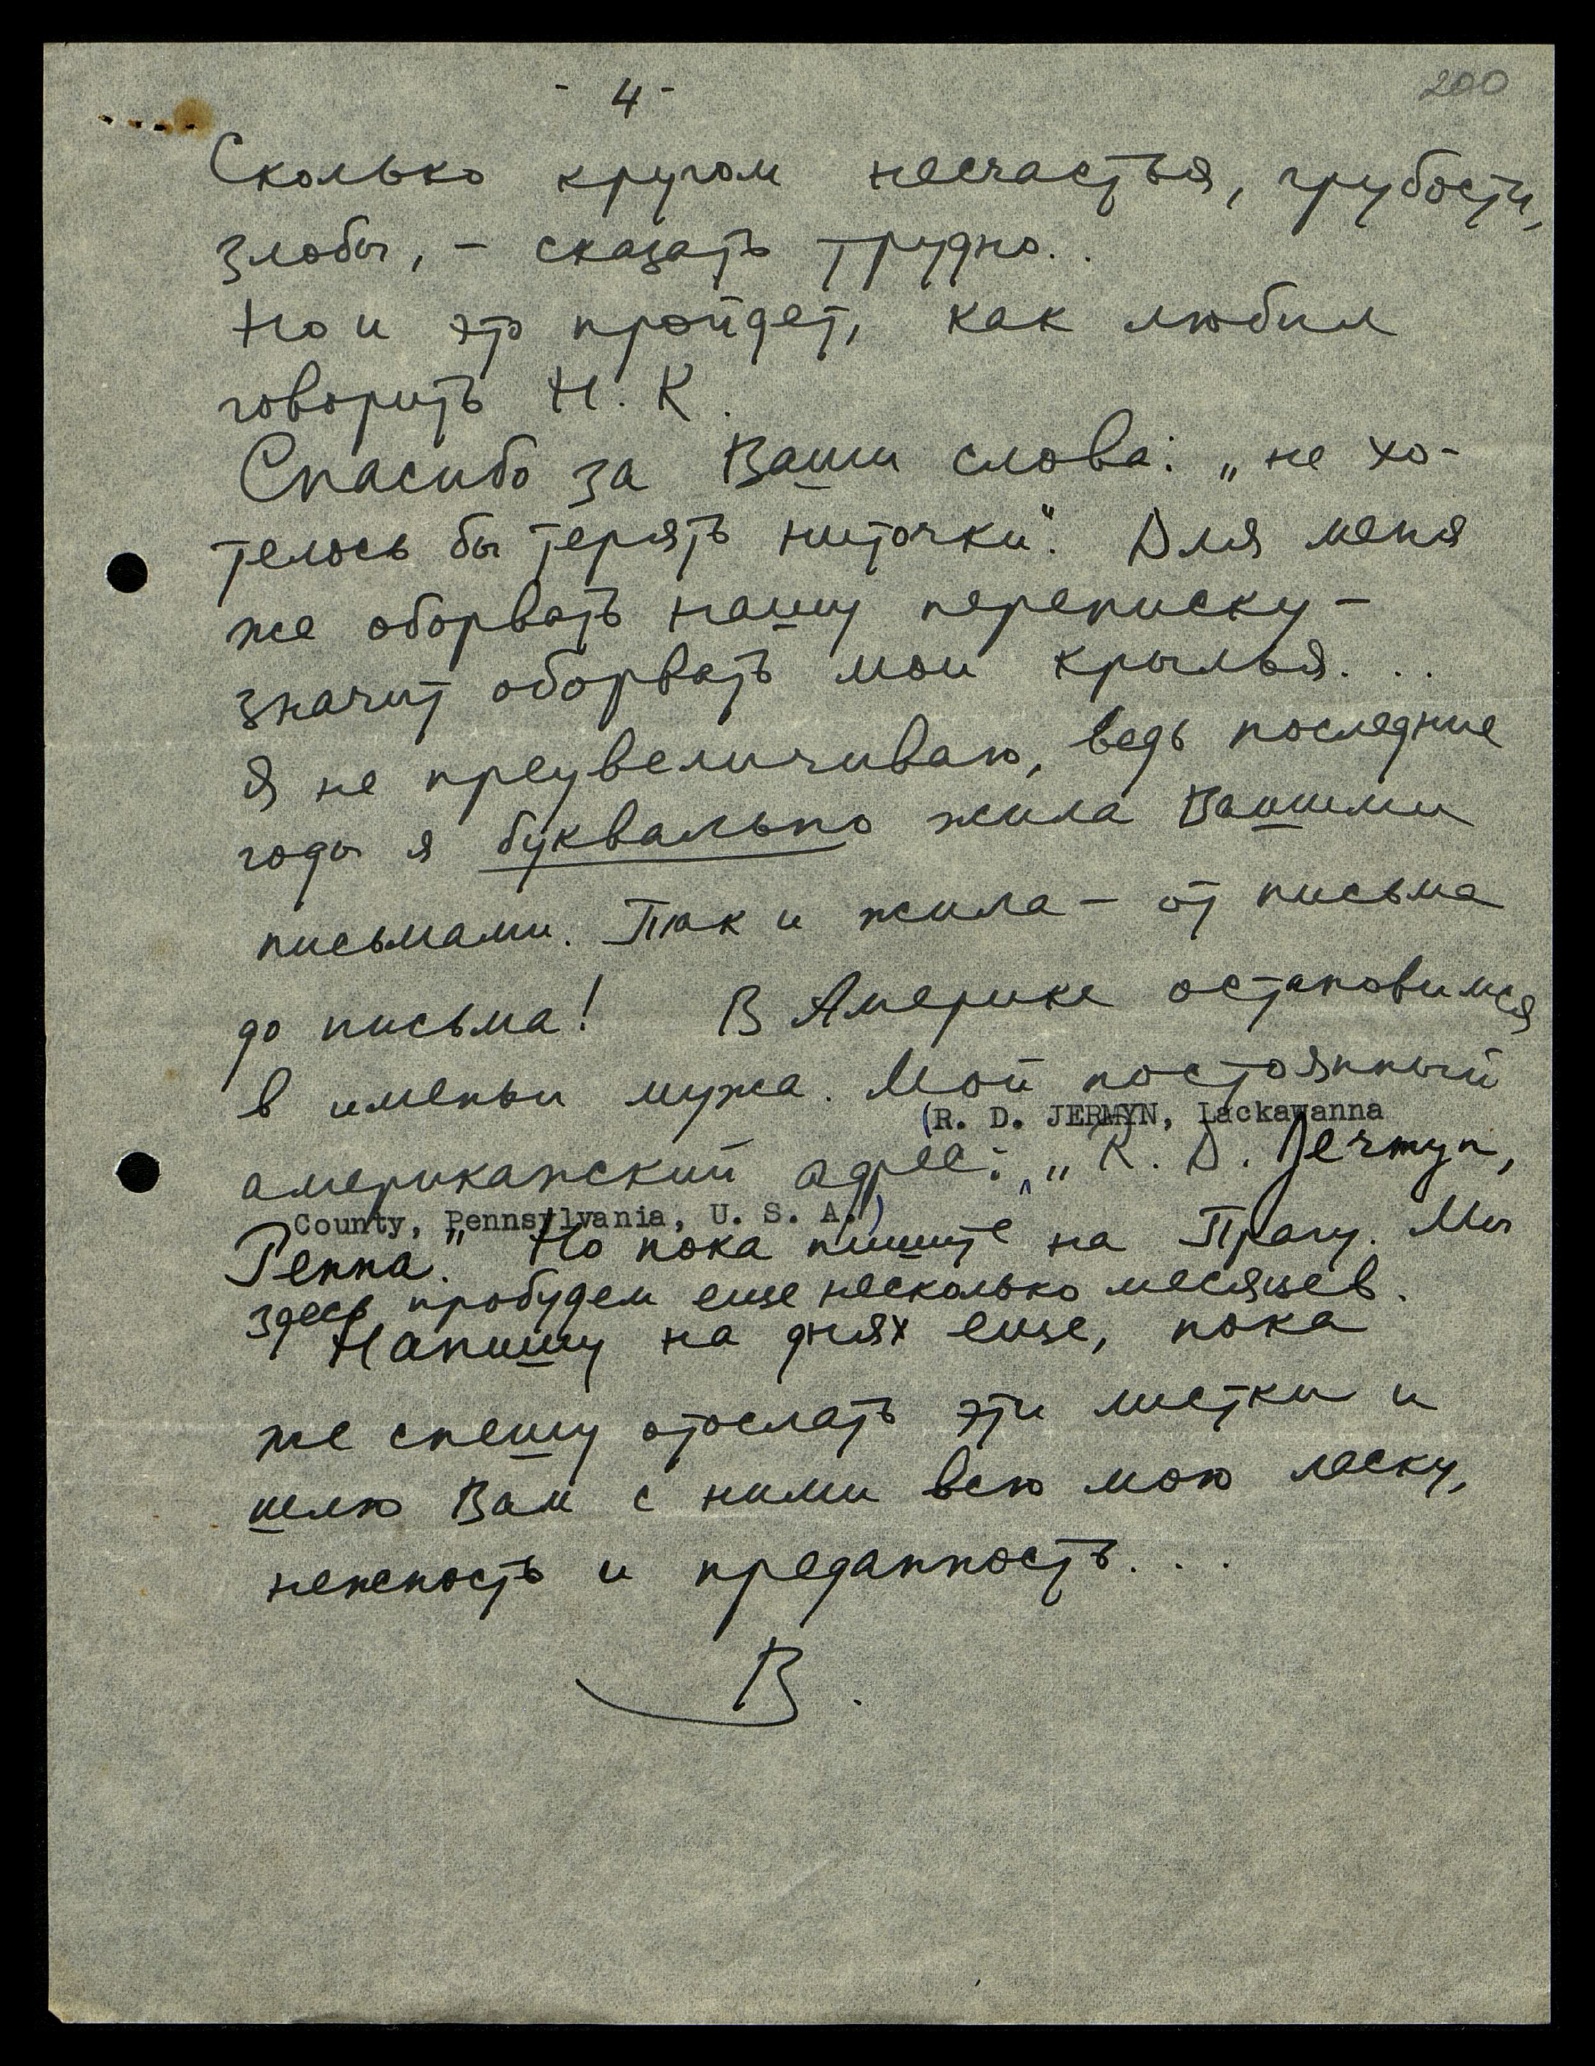 - 4 -
200
Сколько кругом несчастья, грубости,
злобы, - сказать трудно..
Но и это пройдет, как любил
говорить Н. К.
Спасибо за Ваши слова: „не хо-
телось бы терять ниточки“. Для меня
же оборвать нашу переписку -
значит оборвать мои крылья...
Я не преувеличиваю, ведь последние
годы я буквально жила Вашими
письмами. Так и жила - от письма
до письма! В Америке остановимся
в именьи мужа. Мой постоянный
(R. D. JERMYN, Lackawanna
американский адрес: „R. D. Jermyn,
County, Pennsylvania, U. S. A.)
Penna." Но пока пишите на Прагу. Мы
здесь пробудем еще несколько месяцев.
Напишу на днях еще, пока
же спешу отослать эти листки и
шлю Вам с ними всю мою ласку,
нежность и преданность...
В.